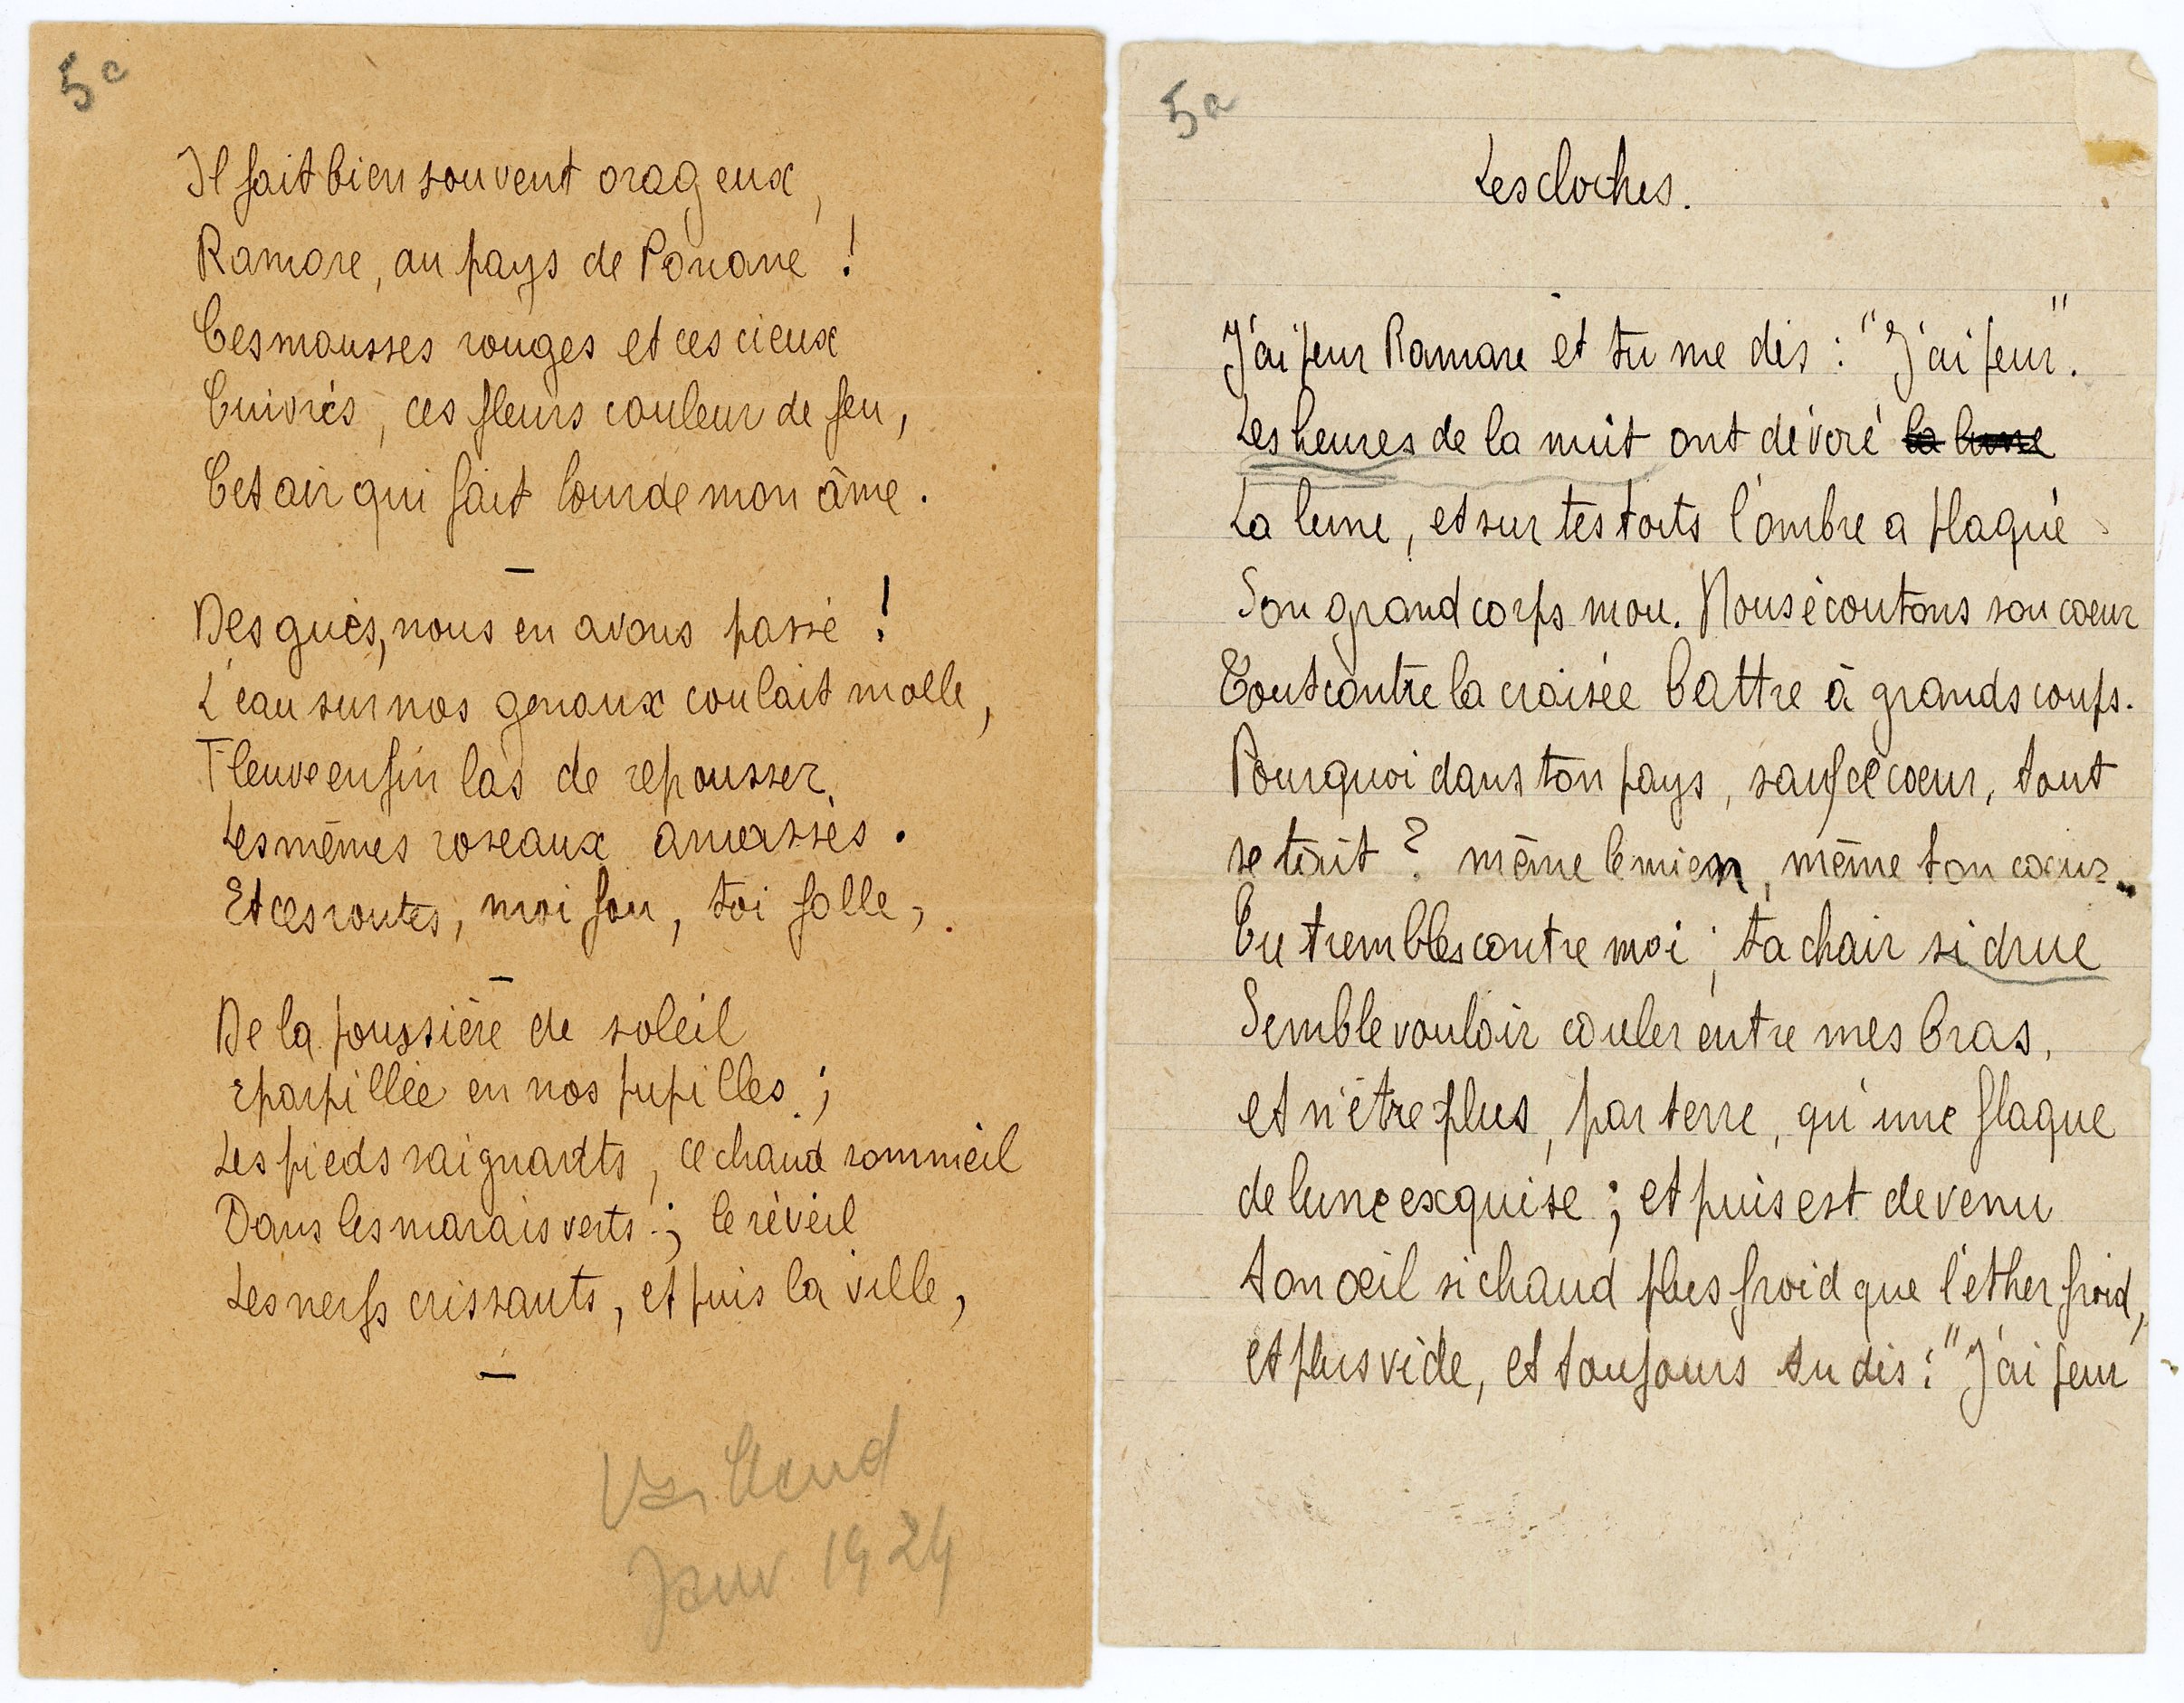 5c
Il fait bien souvent orageux,
Ramore, au pays de Pouane !
Ces mousses rouges et ces cieux
Cuivrés, ces fleurs couleur de feu,
Cet air qui fait lourde mon âme.
—
Des gués, nous en avons passé !
L'eau sur nos genoux coulait molle,
Fleuve enfin las de repousser
Les mêmes roseaux amassés.
Et ces routes, moi fou, toi folle,
—
De la poussière de soleil
eparpillée en nos pupilles ;
Les pieds saignants, ce chaud sommeil
Dans les marais verts ; le réveil
Les nerfs crissants, et puis la ville,
—
Vaillend
Janv 1924
5a
Les cloches.
J'ai peur Ramore et tu me dis : "J'ai peur".
Les heures de la nuit ont dévoré la lune
La lune, et sur tes toits l'ombre a plaqué
Son grand corps mou. Nous écoutons son coeur
Tout contre la croisée battre à grands coups.
Pourquoi dans ton pays, sauf ce coeur, tout
se tait ? même le mien, même ton coeur.
Tu trembles contre moi ; ta chair si drue
Semble vouloir couler entre mes bras,
et n'être plus, par terre, qu'une flaque
de lune exquise ; et puis est devenu
ton œil si chaud plus froid que l'éther froid,
et plus vide, et toujours tu dis : "J'ai peur